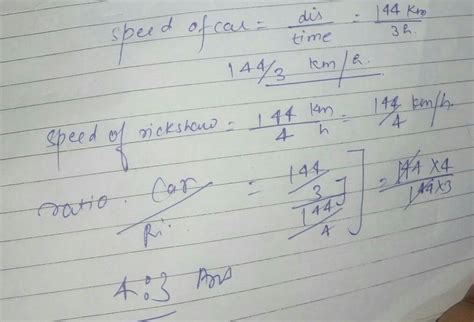 speed of car = dis/time = 144 Km/3h.
144/3 km/h.
speed of rickshaw = 144 km/4 h = 144/4 km/h.
ratio. Car/Ri. = 144/3 / 144/4 ] = 144 × 4/144 × 3
4:3 Ans